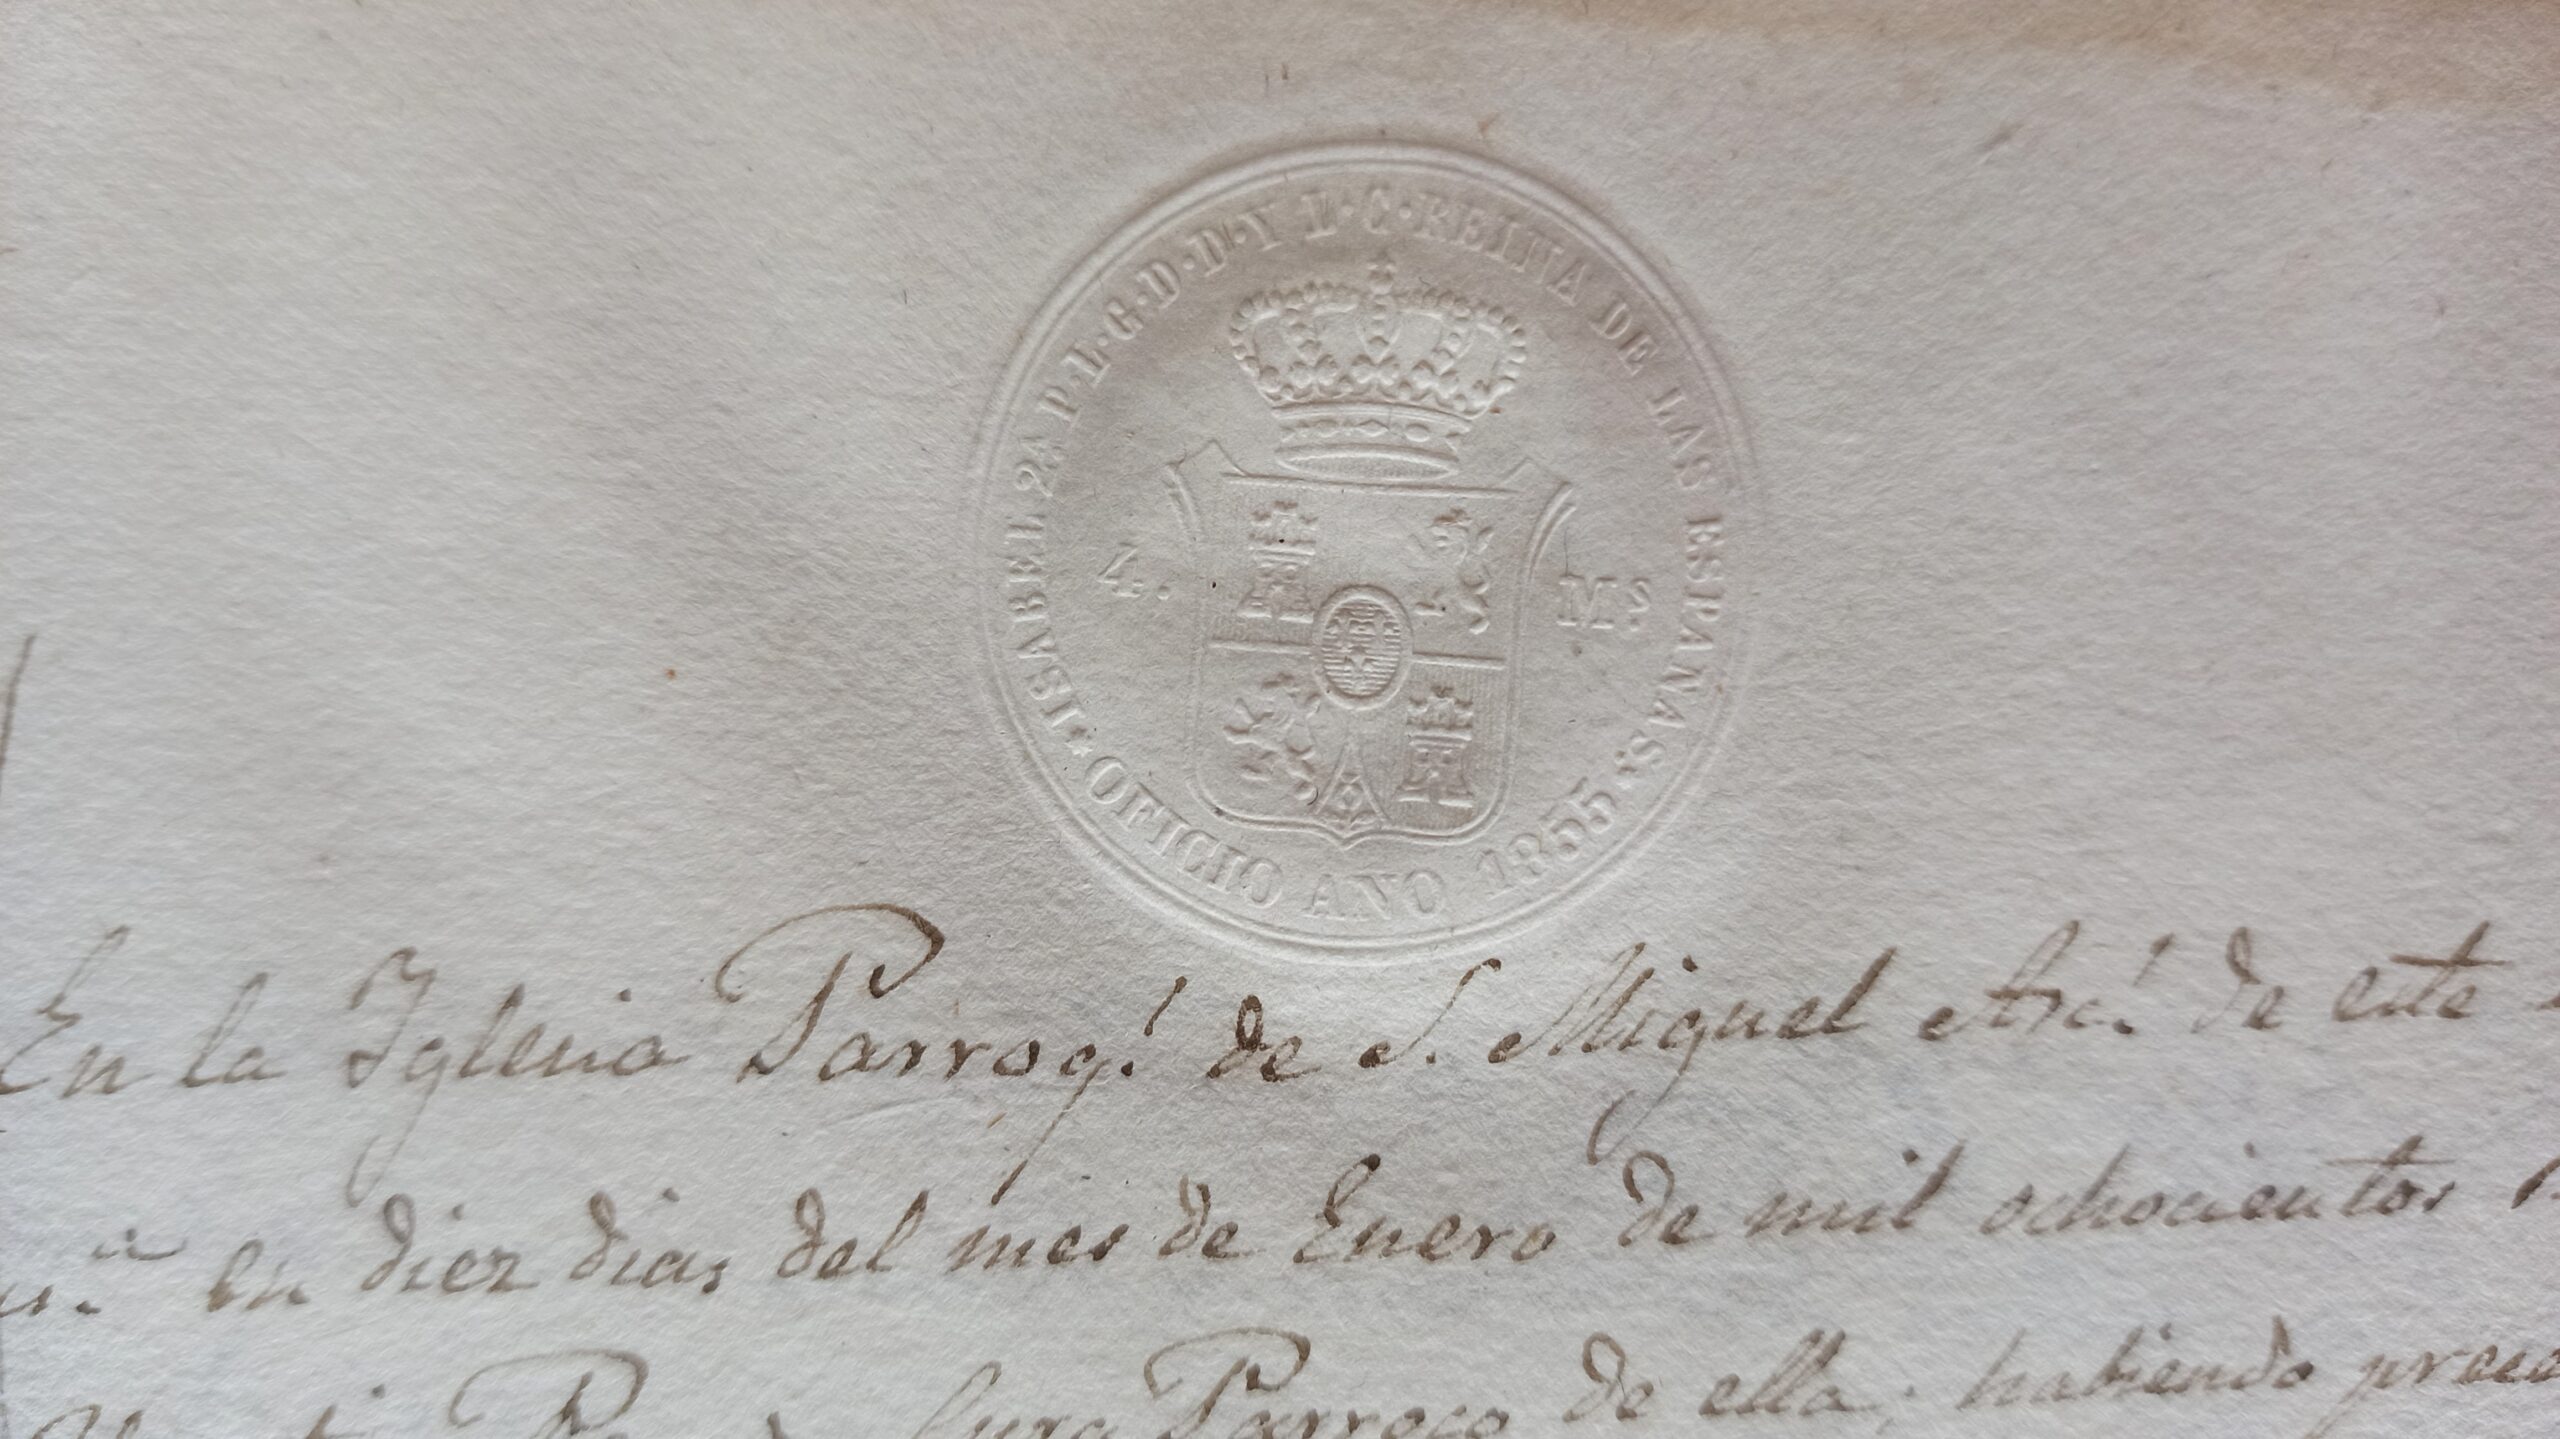 ISABEL 2ª P.L.G.D.D. Y L.C. REINA DE LAS ESPAÑAS.
4. Mˢ.
* OFICIO AÑO 1855.
En la Yglesia Parroq.¹ de S. Miguel Arc.¹ de este
en diez dias del mes de Enero de mil ochocientos
Cura Parroco de ella, habiendo